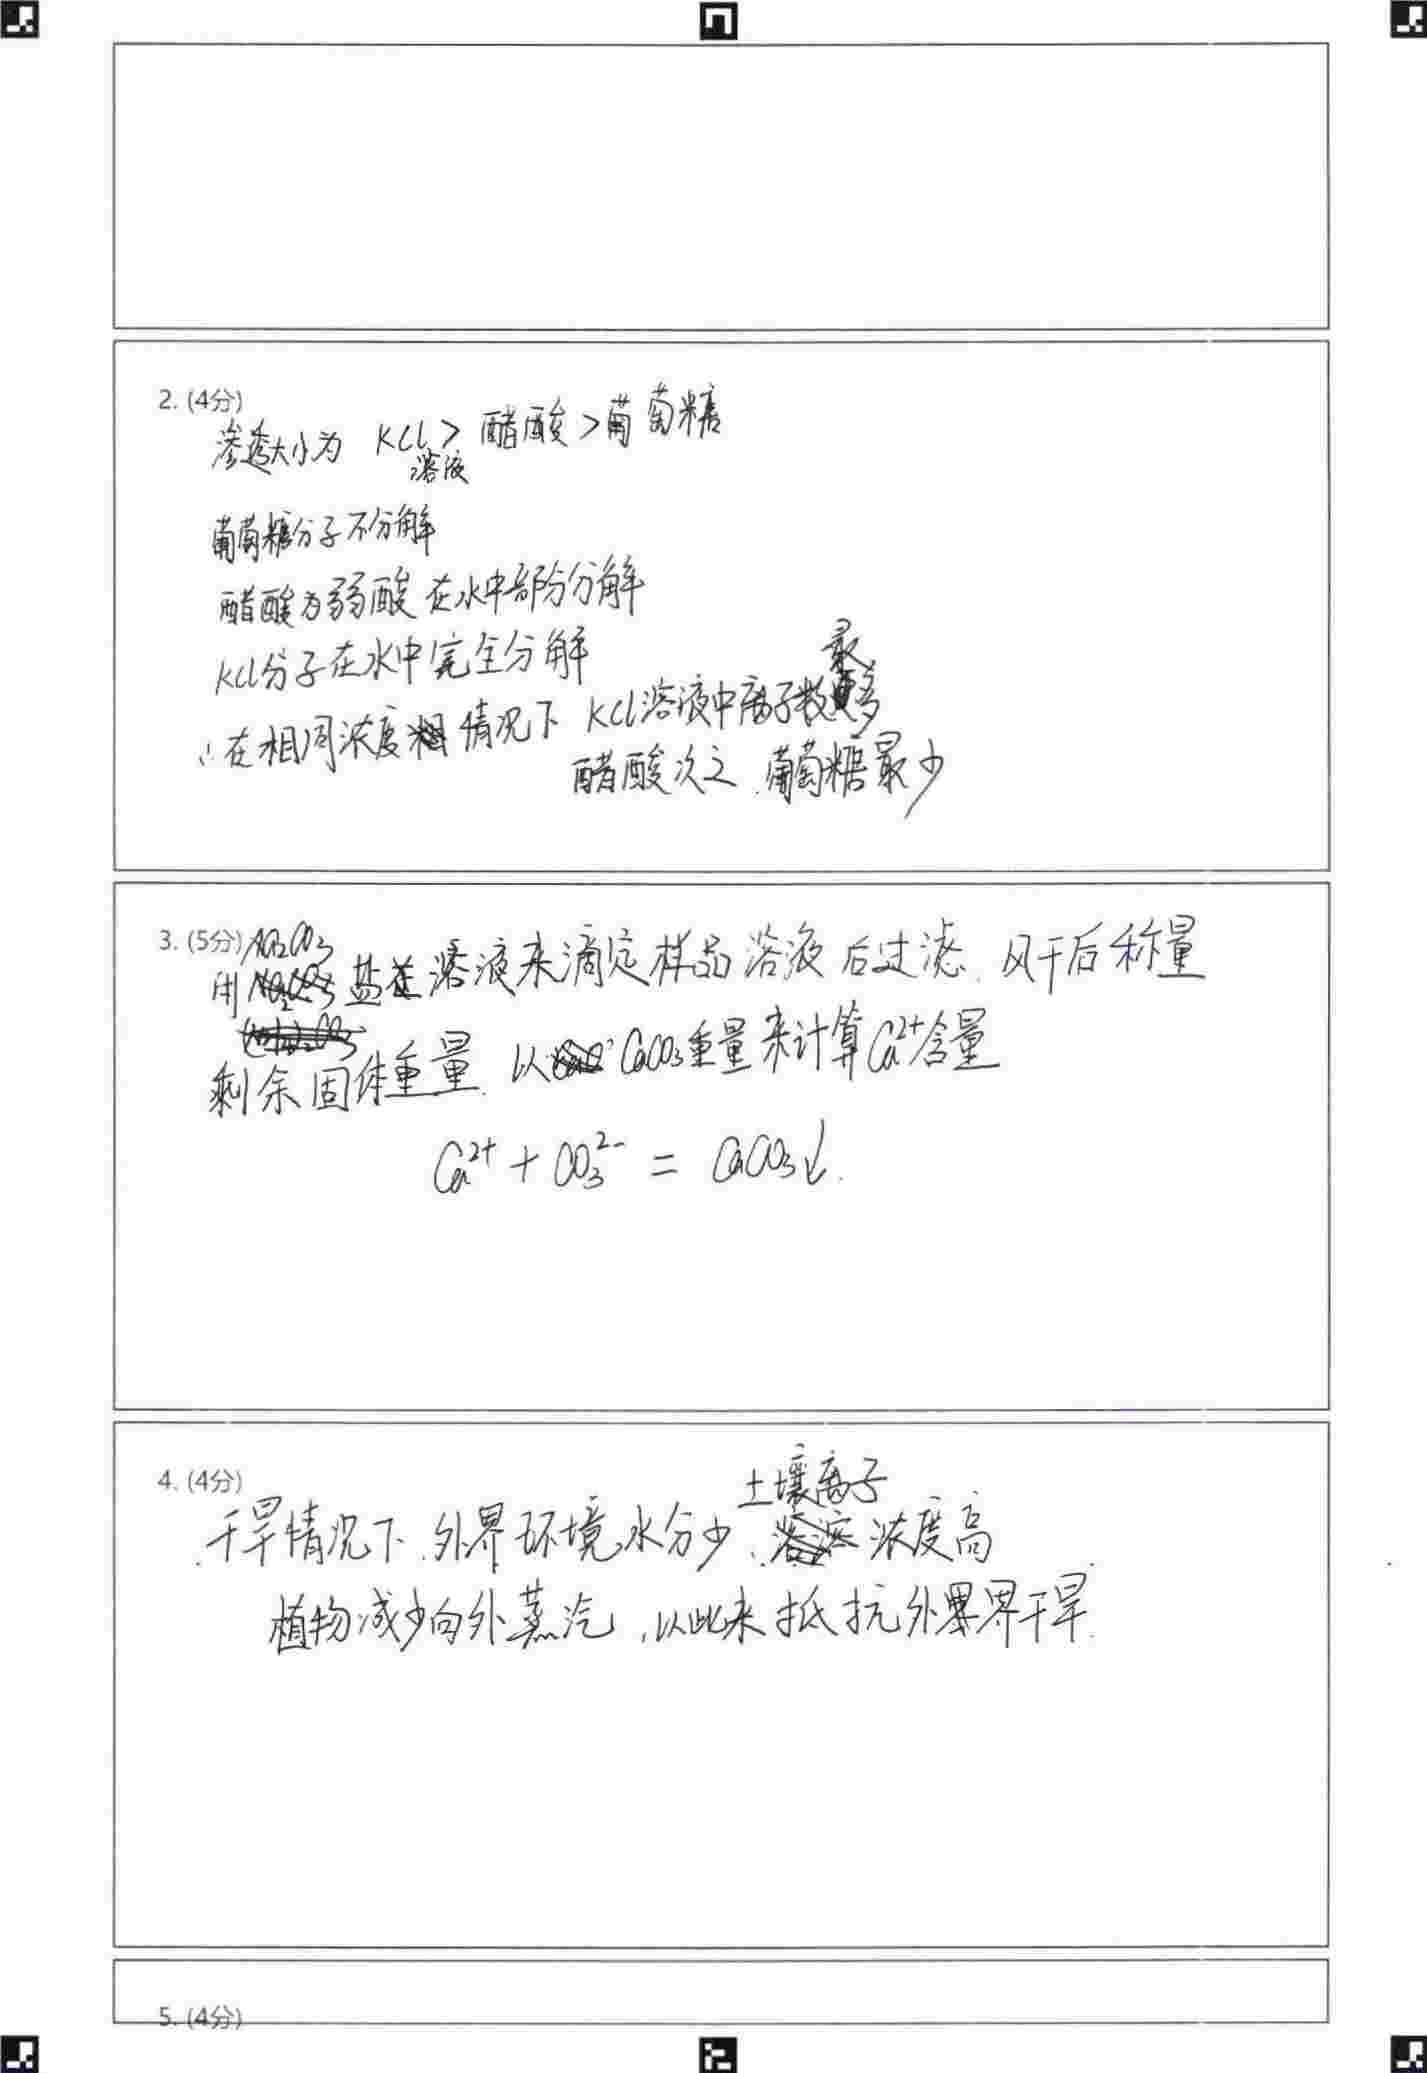 2. (4分)
渗透大小为 KCl溶液 > 醋酸 > 葡萄糖
葡萄糖分子不分解
醋酸为弱酸 在水中部分分解
KCl分子在水中完全分解
∴在相同浓度情况下 KCl溶液中离子数最多
醋酸次之,葡萄糖最少
3. (5分)
用Na₂CO₃溶液来滴定样品溶液后过滤,风干后称量
剩余固体重量,以CaCO₃重量来计算Ca²⁺含量
Ca²⁺ + CO₃²⁻ = CaCO₃↓.
4. (4分)
干旱情况下,外界环境水分少,土壤离子浓度高
植物减少向外蒸汽,以此来抵抗外界干旱.
5. (4分)